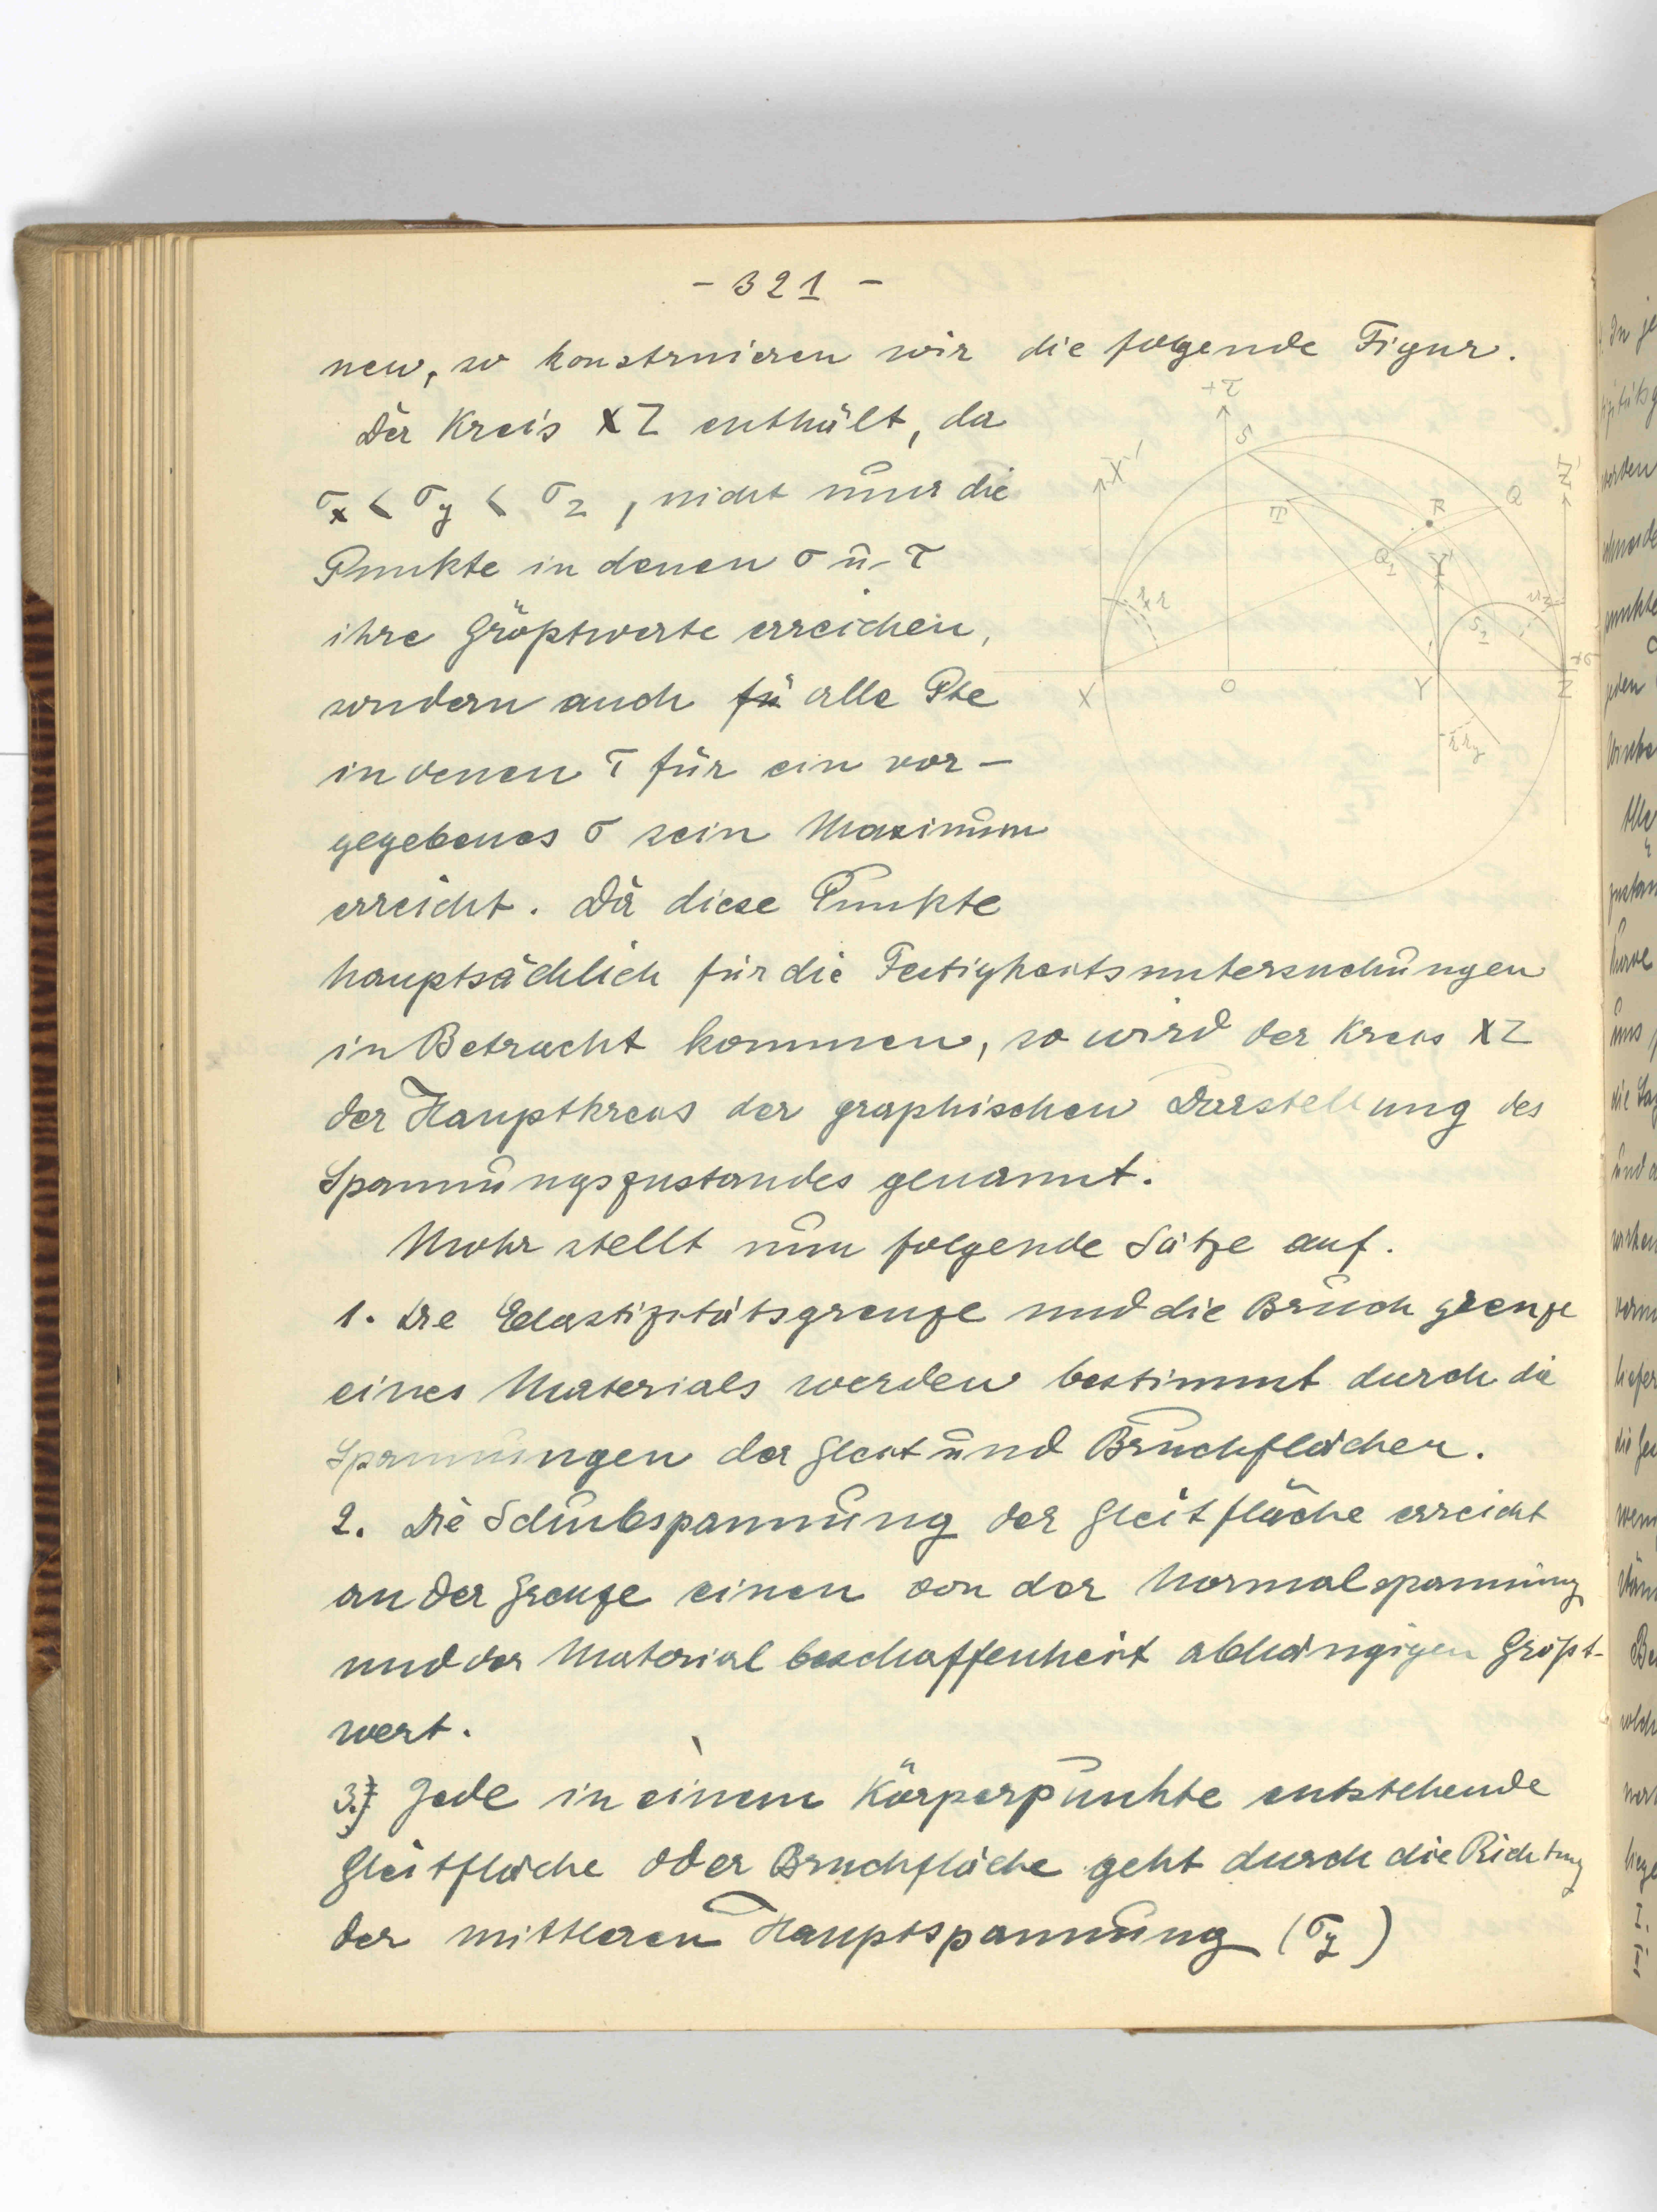 - 321 -
nen, so konstruieren wir die folgende Figur.
Der Kreis XZ enthält, da
σx < σy < σz, nicht nur die
Punkte in denen σ u. τ
ihre Größtwerte erreichen,
sondern auch fü alle Pte
in denen τ für ein vor-
gegebenes σ sein Maximum
erreicht. Da diese Punkte
hauptsächlich für die Festigkeitsuntersuchungen
in Betracht kommen, so wird der Kreis XZ
der Hauptkreis der graphischen Darstellung des
Spannungszustandes genannt.
Mohr stellt nun folgende Sätze auf.
1. Die Elastizitätsgrenze und die Bruchgrenze
eines Materials werden bestimmt durch die
Spannungen der Gleit und Bruchflächen.
2. Die Schubspannung der Gleitfläche erreicht
an der Grenze einen von der Normalspannung
und der Materialbeschaffenheit abhängigen Größt-
wert.
3.) Jede in einem Körperpunkte entstehende
Gleitfläche oder Bruchfläche geht durch die Richtung
der mittleren Hauptspannung (σy)
+τ
S
X'
Z'
Q
R
T
Q1
Y'
S1
X
O
Y
Z
+σ